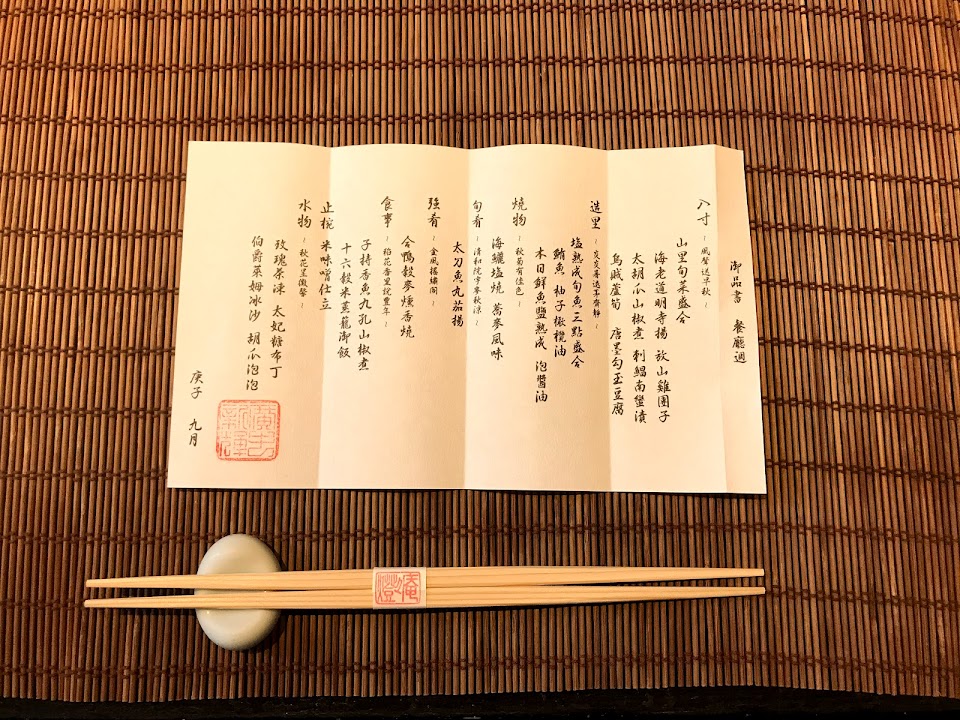 御品書 餐廳週
八寸
~風聲送早秋~
山里旬菜盛合
海老道明寺揚 放山雞團子
太胡瓜山椒煮 刺鯧南蠻漬
烏賊蘆筍 唐墨勾玉豆腐
造里
~交交喜送不齊靜~
塩熟成旬魚三點盛合
鮪魚 柚子橄欖油
本日鮮魚鹽熟成 泡醬油
燒物
~秋菊有佳色~
海鱺塩燒 蕎麥風味
旬肴
~清和院宇麥秋涼~
太刀魚丸茄揚
強肴
~金風搖繡閣~
合鴨穀麥燻香燒
食事
~稻花香里說豐年~
子持香魚九孔山椒煮
十六穀米蒸籠御飯
止椀 米味噌仕立
水物
~秋花星微馨~
玫瑰茶凍 太妃糖布丁
伯爵萊姆冰沙 胡瓜泡泡
庚子 九月
澄庵